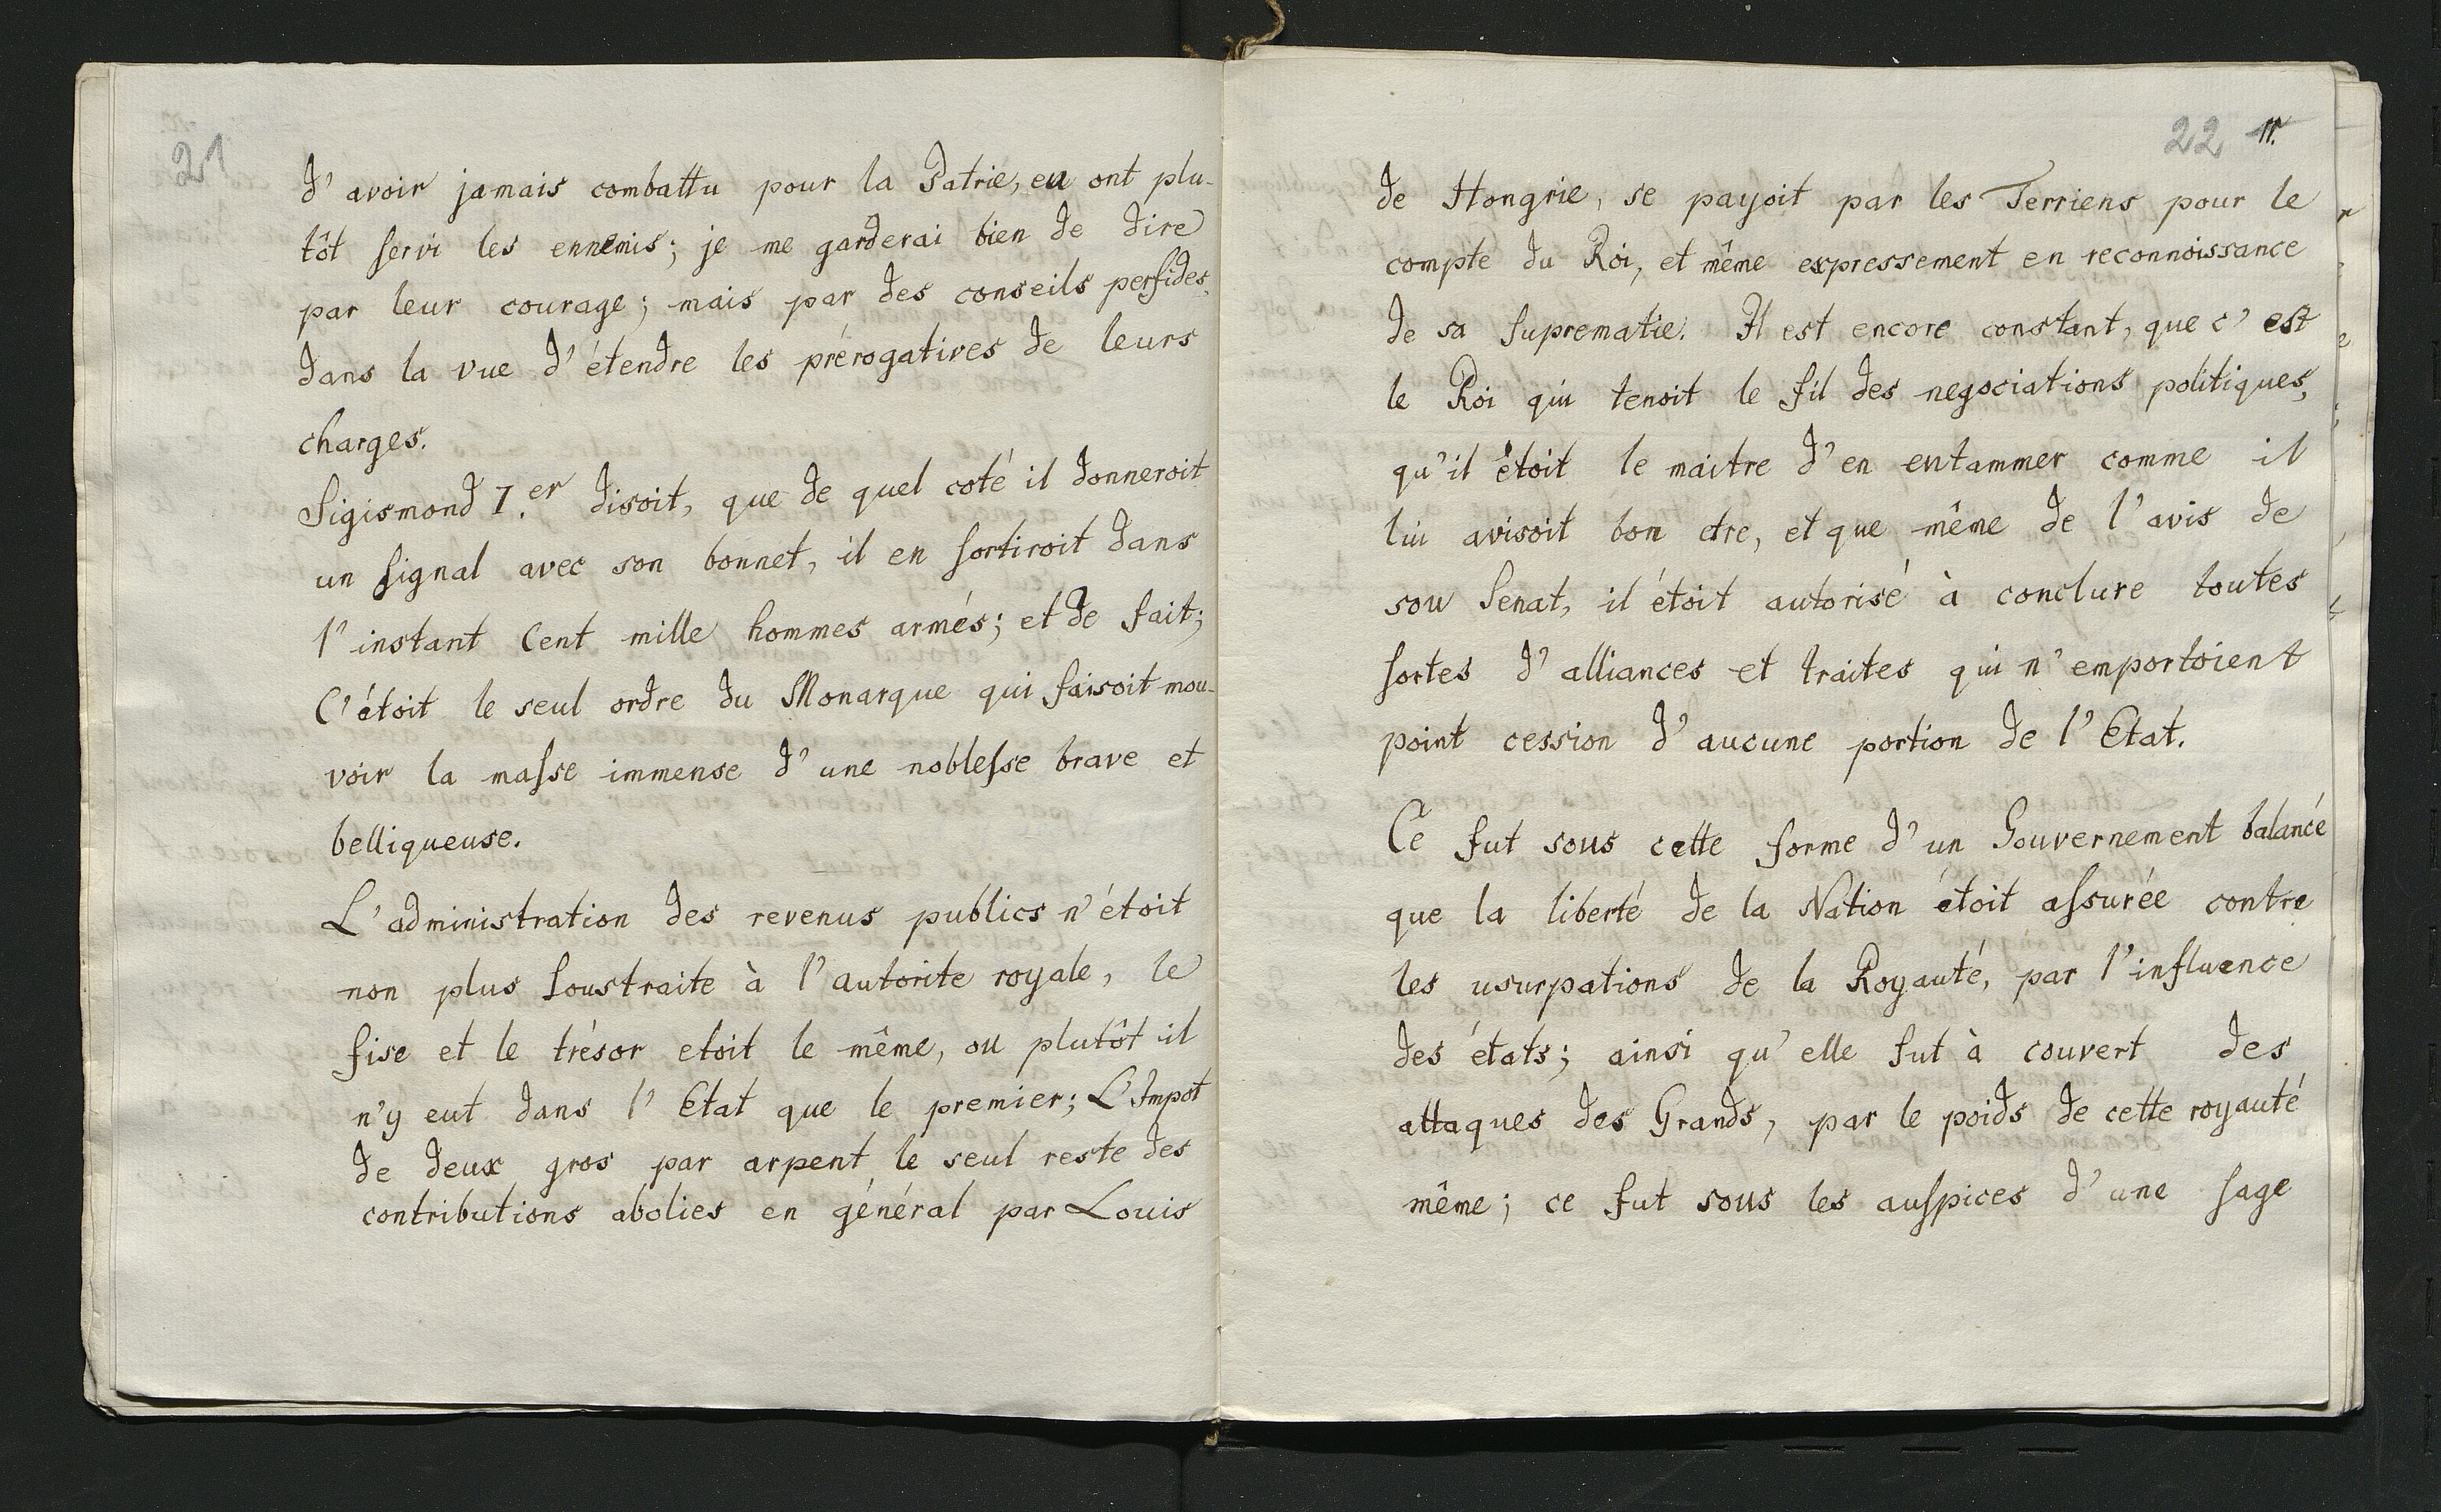 21
d'avoir jamais combattu pour la Patrie, en ont plu-
tôt servi les ennemis; je me garderai bien de dire
par leur courage; mais par des conseils perfides,
dans la vue d'étendre les prérogatives de leurs
charges.
Sigismond I.er disoit, que de quel coté il donneroit
un signal avec son bonnet, il en sortiroit dans
l'instant Cent mille hommes armés; et de fait;
C'étoit le seul ordre du Monarque qui faisoit mou-
voir la masse immense d'une noblesse brave et
belliqueuse.
L'administration des revenus publics n'étoit
non plus soustraite à l'autorite royale, le
fisc et le trésor etoit le même, ou plutôt il
n'y eut dans l'Etat que le premier; L'Impot
de deux gros par arpent le seul reste des
contributions abolies en général par Louis
22 11.
de Hongrie, se payoit par les Terriens pour le
compte du Roi, et même expressement en reconnoissance
de sa suprematie. Il est encore constant, que c'est
le Roi qui tenoit le fil des negociations politiques,
qu'il étoit le maitre d'en entammer comme il
lui avisoit bon etre, et que même de l'avis de
son Senat, il étoit autorisé à conclure toutes
sortes d'alliances et traites qui n'emportoient
point cession d'aucune portion de l'Etat.
Ce fut sous cette forme d'un Gouvernement balancé
que la liberté de la Nation étoit assurée contre
les usurpations de la Royauté, par l'influence
des états; ainsi qu'elle fut à couvert des
attaques des Grands, par le poids de cette royauté
même; ce fut sous les auspices d'une sage